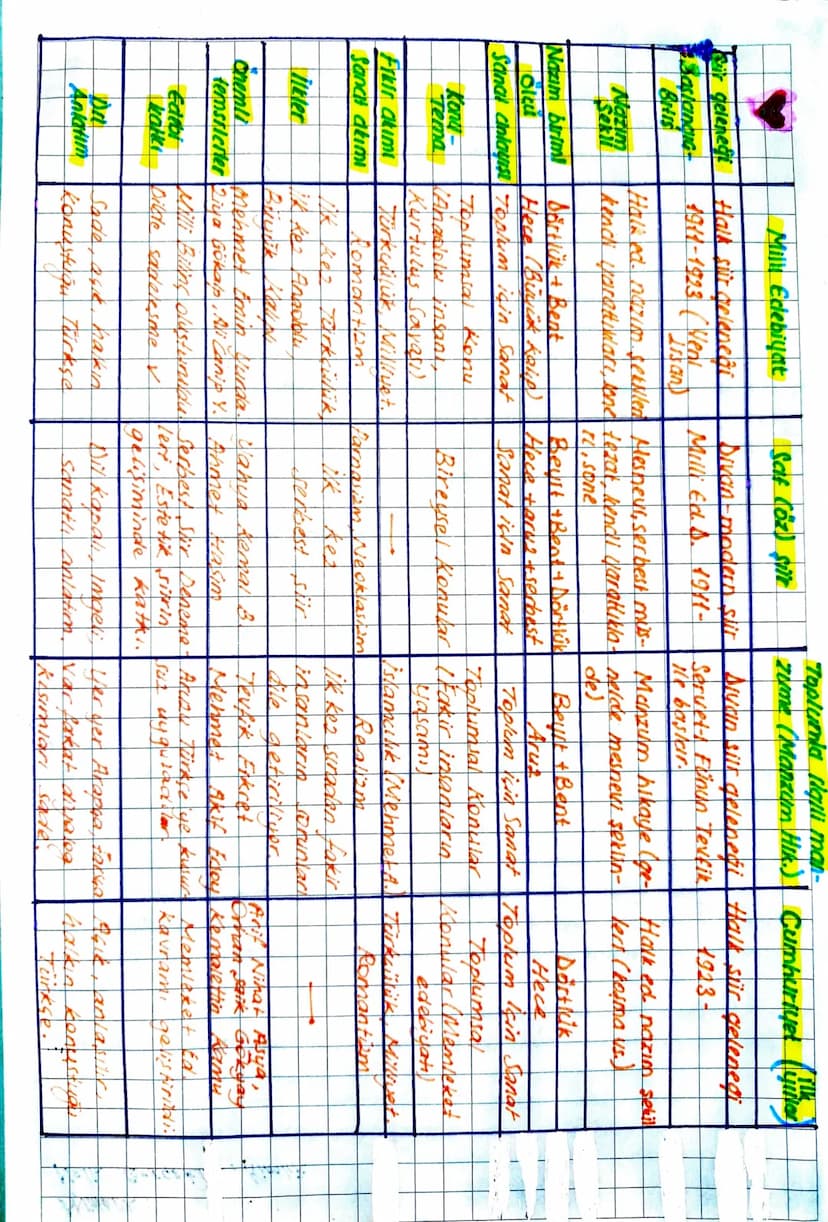 Milli Edebiyat
Saf (öz) şiir
Toplumla ilgili man-
zume (Manzum Hik.)
Cumhuriyet (ilk
yıllar)
Şiir geleneği
Halk şiir geleneği
Divan-modern şiir
Divan şiir geleneği
Halk şiir geleneği
Başlangıç-
Bitiş
1911-1923 (Yeni
Lisan)
Milli Ed.D. 1911-
Servet-i Fünun Tevfik
ile başlar.
1923-
Nazım
Şekli
Halk ed. nazım şekilleri
kendi yarattıkları, sone
Mesnevi, serbest müs-
tezat, kendi yarattıkla-
rı, sone
Manzum hikaye (ge-
nelde mesnevi şeklin-
de)
Halk ed nazım şekil
leri (koşma vs.)
Nazım birimi
Dörtlük + Bent
Beyit + Bent + Dörtlük
Beyit + Bent
Dörtlük
Ölçü
Hece (Büyük kalıp)
Hece + aruz + serbest
Aruz
Hece
Sanat anlayışı
Toplum için sanat
Sanat için sanat
Toplum için Sanat
Toplum için Sanat
Konu-
Tema
Toplumsal konu
(Anadolu insanı,
Kurtuluş Savaşı)
Bireysel konular
Toplumsal konular
(Fakir insanların
yaşamı)
Toplumsal
Konular (Memleket
edebiyatı)
Fikir akımı
Türkçülük, Milliyet.
—
İslamcılık (Mehmet A.)
Türkçülük, Milliyet.
Sanat akımı
Romantizm
Parnasizm, Neoklasizm
Realizm
Romantizm
İlkler
İlk kez Türkçülük,
İlk kez Anadolu,
Büyük kalıp
İlk kez
serbest şiir
İlk kez sıradan fakir
insanların sorunları
dile getiriliyor.
—
Önemli
temsilciler
Mehmet Emin Yurda.
Ziya Gökalp, Ali Canip Y.
Yahya Kemal B.
Ahmet Haşim
Tevfik Fikret
Mehmet Akif Ersoy
Arif Nihat Asya,
Orhan Şaik Gökyay
Kemalettin Kamu
Edebi
katkı
Milli Bilinç oluşturuldu
Dilde sadeleşme
Serbest Şiir Deneme-
leri, Estetik şiirin
gelişiminde katkı.
Aruzu Türkçe'ye kusur-
suz uyguladılar.
Memleket Ed.
kavramı geliştirildi.
Dil
Anlatım
Sade, açık, halkın
konuştuğu Türkçe
Dil kapalı, imgeli,
sanatlı anlatım
Yer yer Arapça, Farsça
var fakat diyalog
kısımları sade
Açık, anlaşılır,
halkın konuştuğu
Türkçe.